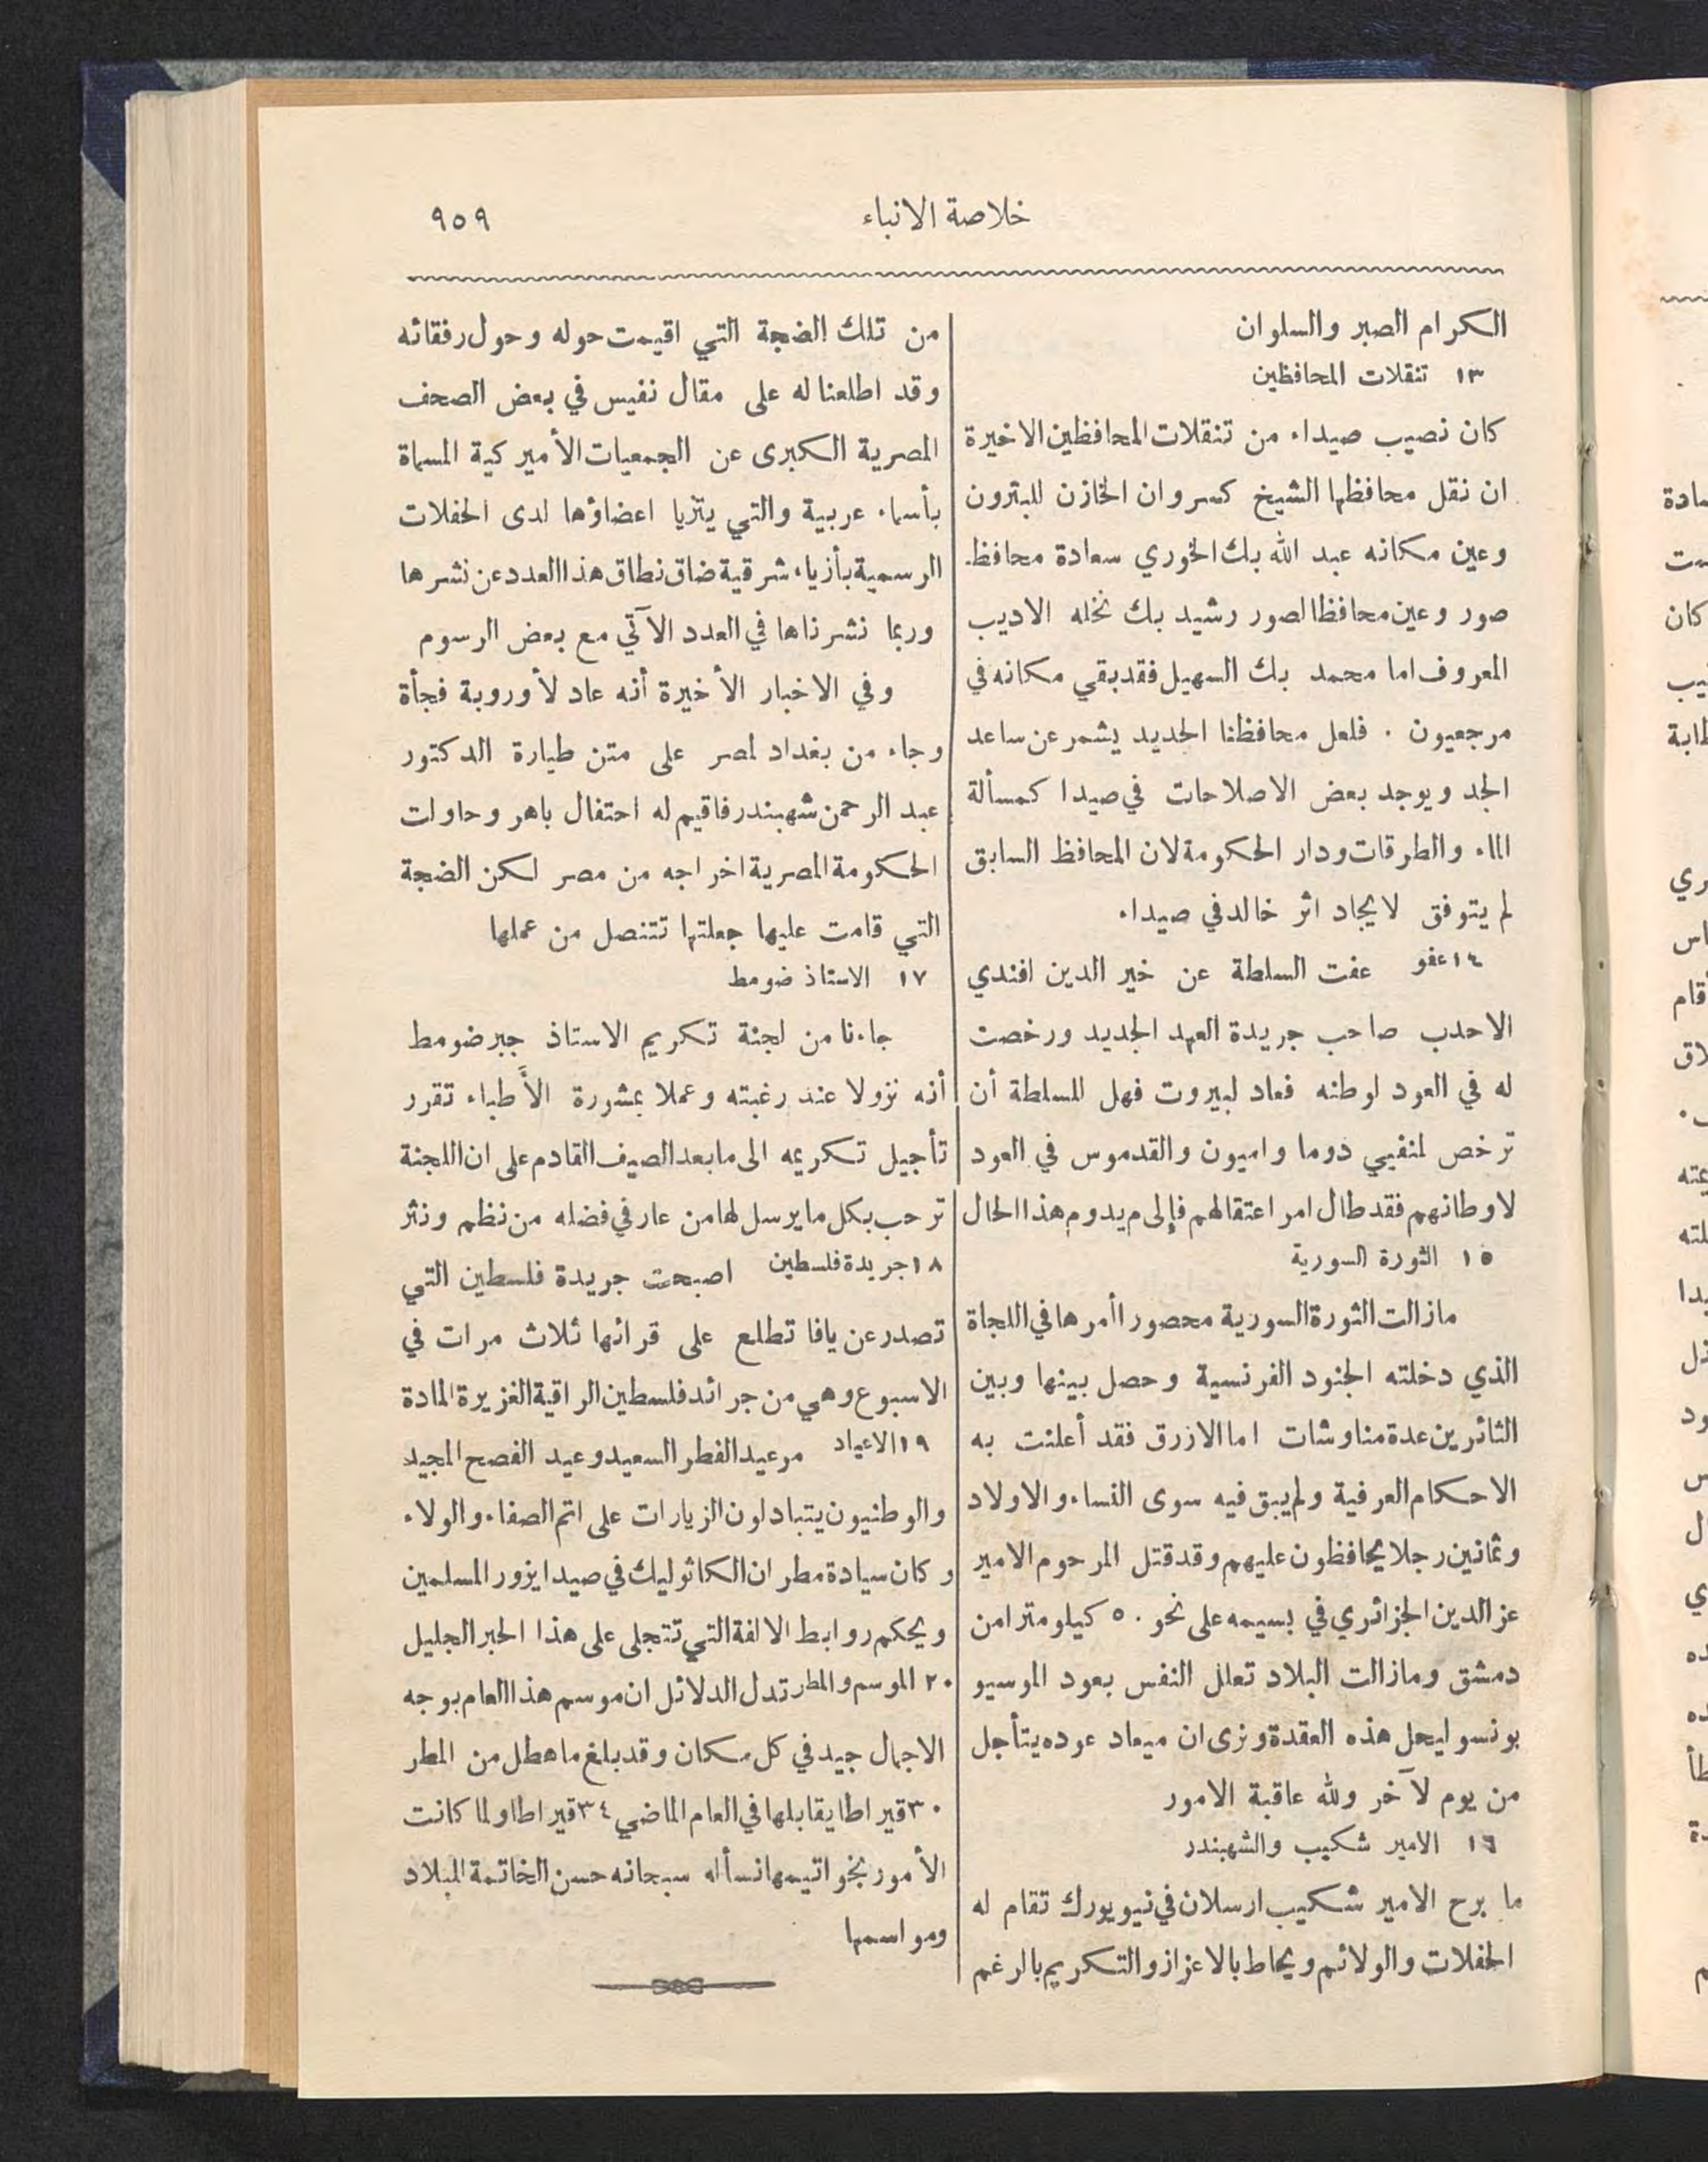 خلاصة الانباء
٩٥٩
الكرام الصبر والسلوان
١٣ تنقلات المحافظين
كان نصيب صيداء من تنقلات المحافظين الاخيرة
ان نقل محافظها الشيخ كسروان الخازن للبترون
وعين مكانه عبد الله بك الخوري سعادة محافظ
صور وعين محافظا لصور رشيد بك نخله الاديب
المعروف اما محمد بك السهيل فقد بقي مكانه في
مرجعيون . فلعل محافظنا الجديد يشمر عن ساعد
الجد ويوجد بعض الاصلاحات في صيدا كمسألة
الماء والطرقات ودار الحكومة لان المحافظ السابق
لم يتوفق لايجاد اثر خالد في صيداء
١٤ عفو عفت السلطة عن خير الدين افندي
الاحدب صاحب جريدة العهد الجديد ورخصت
له في العود لوطنه فعاد لبيروت فهل للسلطة أن
ترخص لمنفيي دوما واميون والقدموس في العود
لاوطانهم فقد طال امر اعتقالهم فإلى م يدوم هذا الحال
١٥ الثورة السورية
مازالت الثورة السورية محصورا أمرها في اللجاة
الذي دخلته الجنود الفرنسية وحصل بينها وبين
الثائرين عدة مناوشات اما الازرق فقد أعلنت به
الاحكام العرفية ولم يبق فيه سوى النساء والاولاد
وثمانين رجلا يحافظون عليهم وقد قتل المرحوم الامير
عز الدين الجزائري في بسيمه على نحو ٥٠ كيلو مترا من
دمشق ومازالت البلاد تعلل النفس بعود الموسيو
بونسو ليحل هذه العقدة ونرى ان ميعاد عوده يتأجل
من يوم لآخر ولله عاقبة الامور
١٦ الامير شكيب والشهبندر
ما برح الامير شكيب ارسلان في نيويورك تقام له
الحفلات والولائم ويحاط بالاعزاز والتكريم بالرغم
من تلك الضجة التي اقيمت حوله وحول رفقائه
وقد اطلعنا له على مقال نفيس في بعض الصحف
المصرية الكبرى عن الجمعيات الأميركية المسماة
بأسماء عربية والتي يتزيا اعضاؤها لدى الحفلات
الرسمية بأزياء شرقية ضاق نطاق هذا العدد عن نشرها
وربما نشرناها في العدد الآتي مع بعض الرسوم
وفي الاخبار الأخيرة أنه عاد لأوروبة فجأة
وجاء من بغداد لمصر على متن طيارة الدكتور
عبد الرحمن شهبندر فاقيم له احتفال باهر وحاولت
الحكومة المصرية اخراجه من مصر لكن الضجة
التي قامت عليها جعلتها تتنصل من عملها
١٧ الاستاذ ضومط
جاءنا من لجنة تكريم الاستاذ جبر ضومط
أنه نزولا عند رغبته وعملا بمشورة الأطباء تقرر
تأجيل تكريمه الى ما بعد الصيف القادم على ان اللجنة
ترحب بكل ما يرسل لها من عار في فضله من نظم ونثر
١٨ جريدة فلسطين اصبحت جريدة فلسطين التي
تصدر عن يافا تطلع على قرائها ثلاث مرات في
الاسبوع وهي من جرائد فلسطين الراقية الغزيرة المادة
١٩ الاعياد مر عيد الفطر السعيد وعيد الفصح المجيد
والوطنيون يتبادلون الزيارات على اتم الصفاء والولاء
وكان سيادة مطران الكاثوليك في صيدا يزور المسلمين
ويحكم روابط الالفة التي تتجلى على هذا الحبر الجليل
٢٠ الموسم والمطر تدل الدلائل ان موسم هذا العام بوجه
الاجمال جيد في كل مكان وقد بلغ ما هطل من المطر
٣٠ قيراطا يقابلها في العام الماضي ٣٤ قيراطا ولما كانت
الأمور بخواتيمها نسأله سبحانه حسن الخاتمة للبلاد
ومواسمها